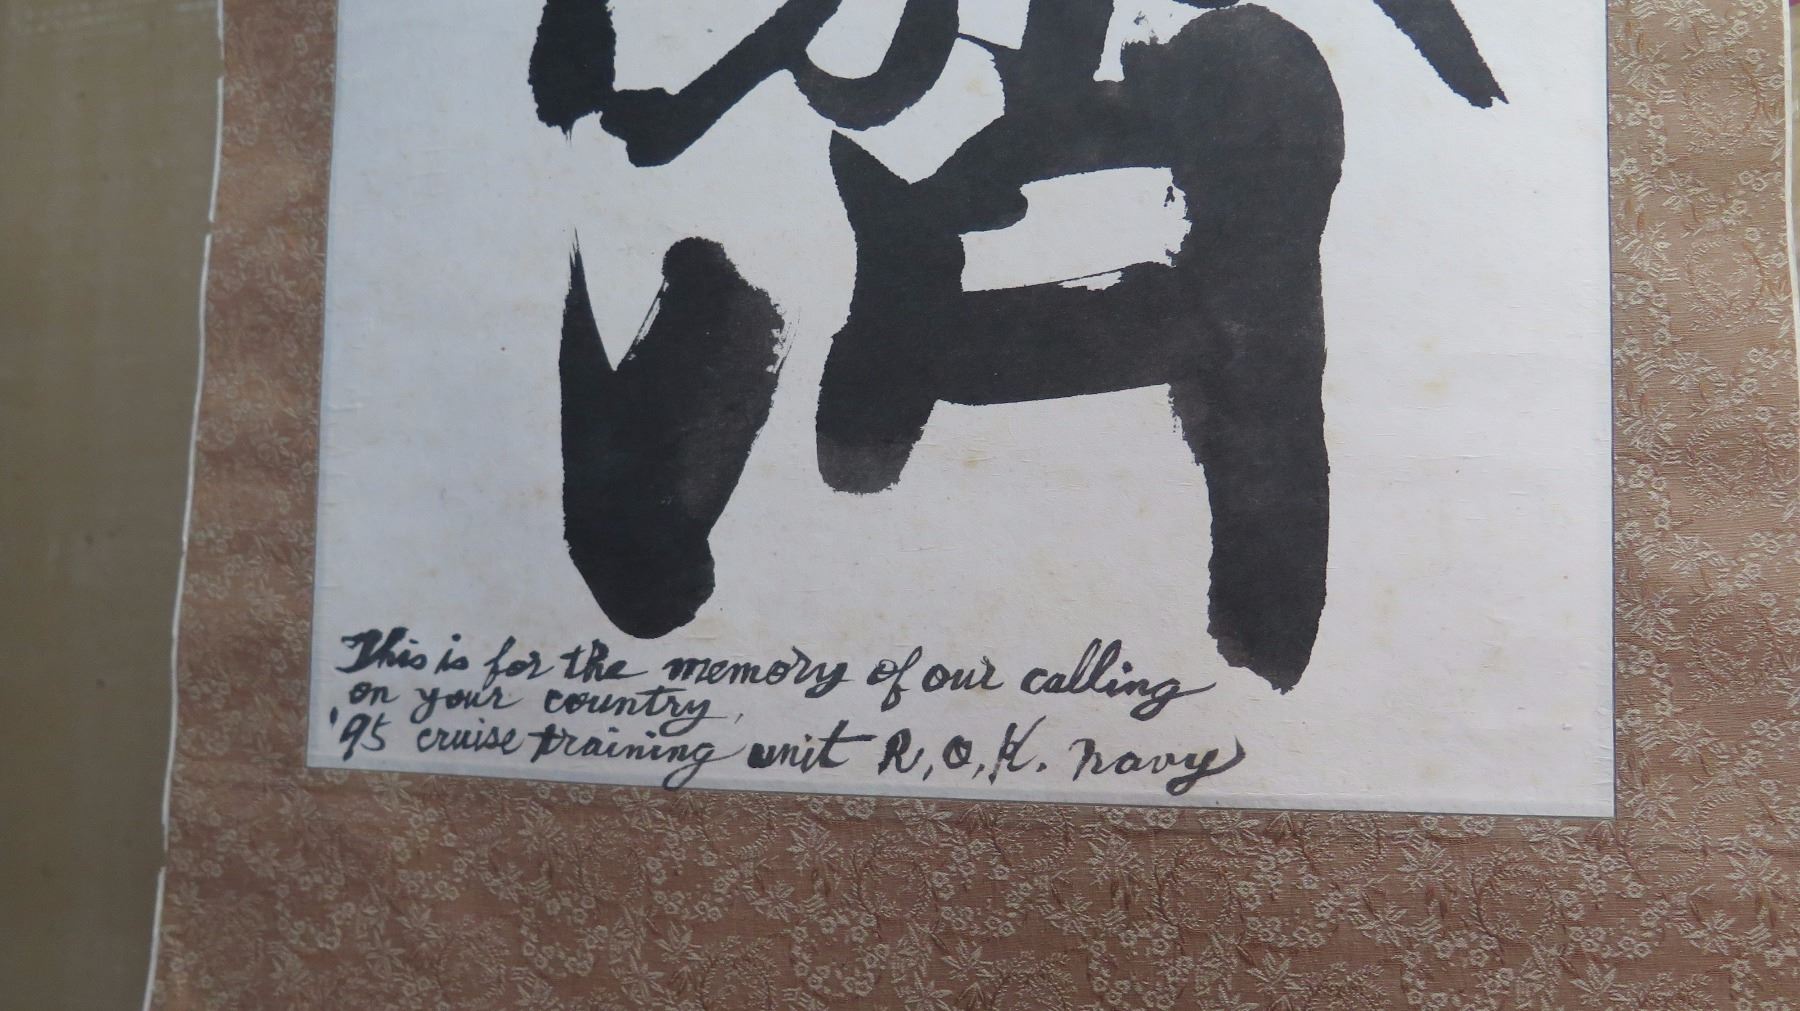 This is for the memory of our calling
on your country,
'95 cruise training unit R.O.K. navy